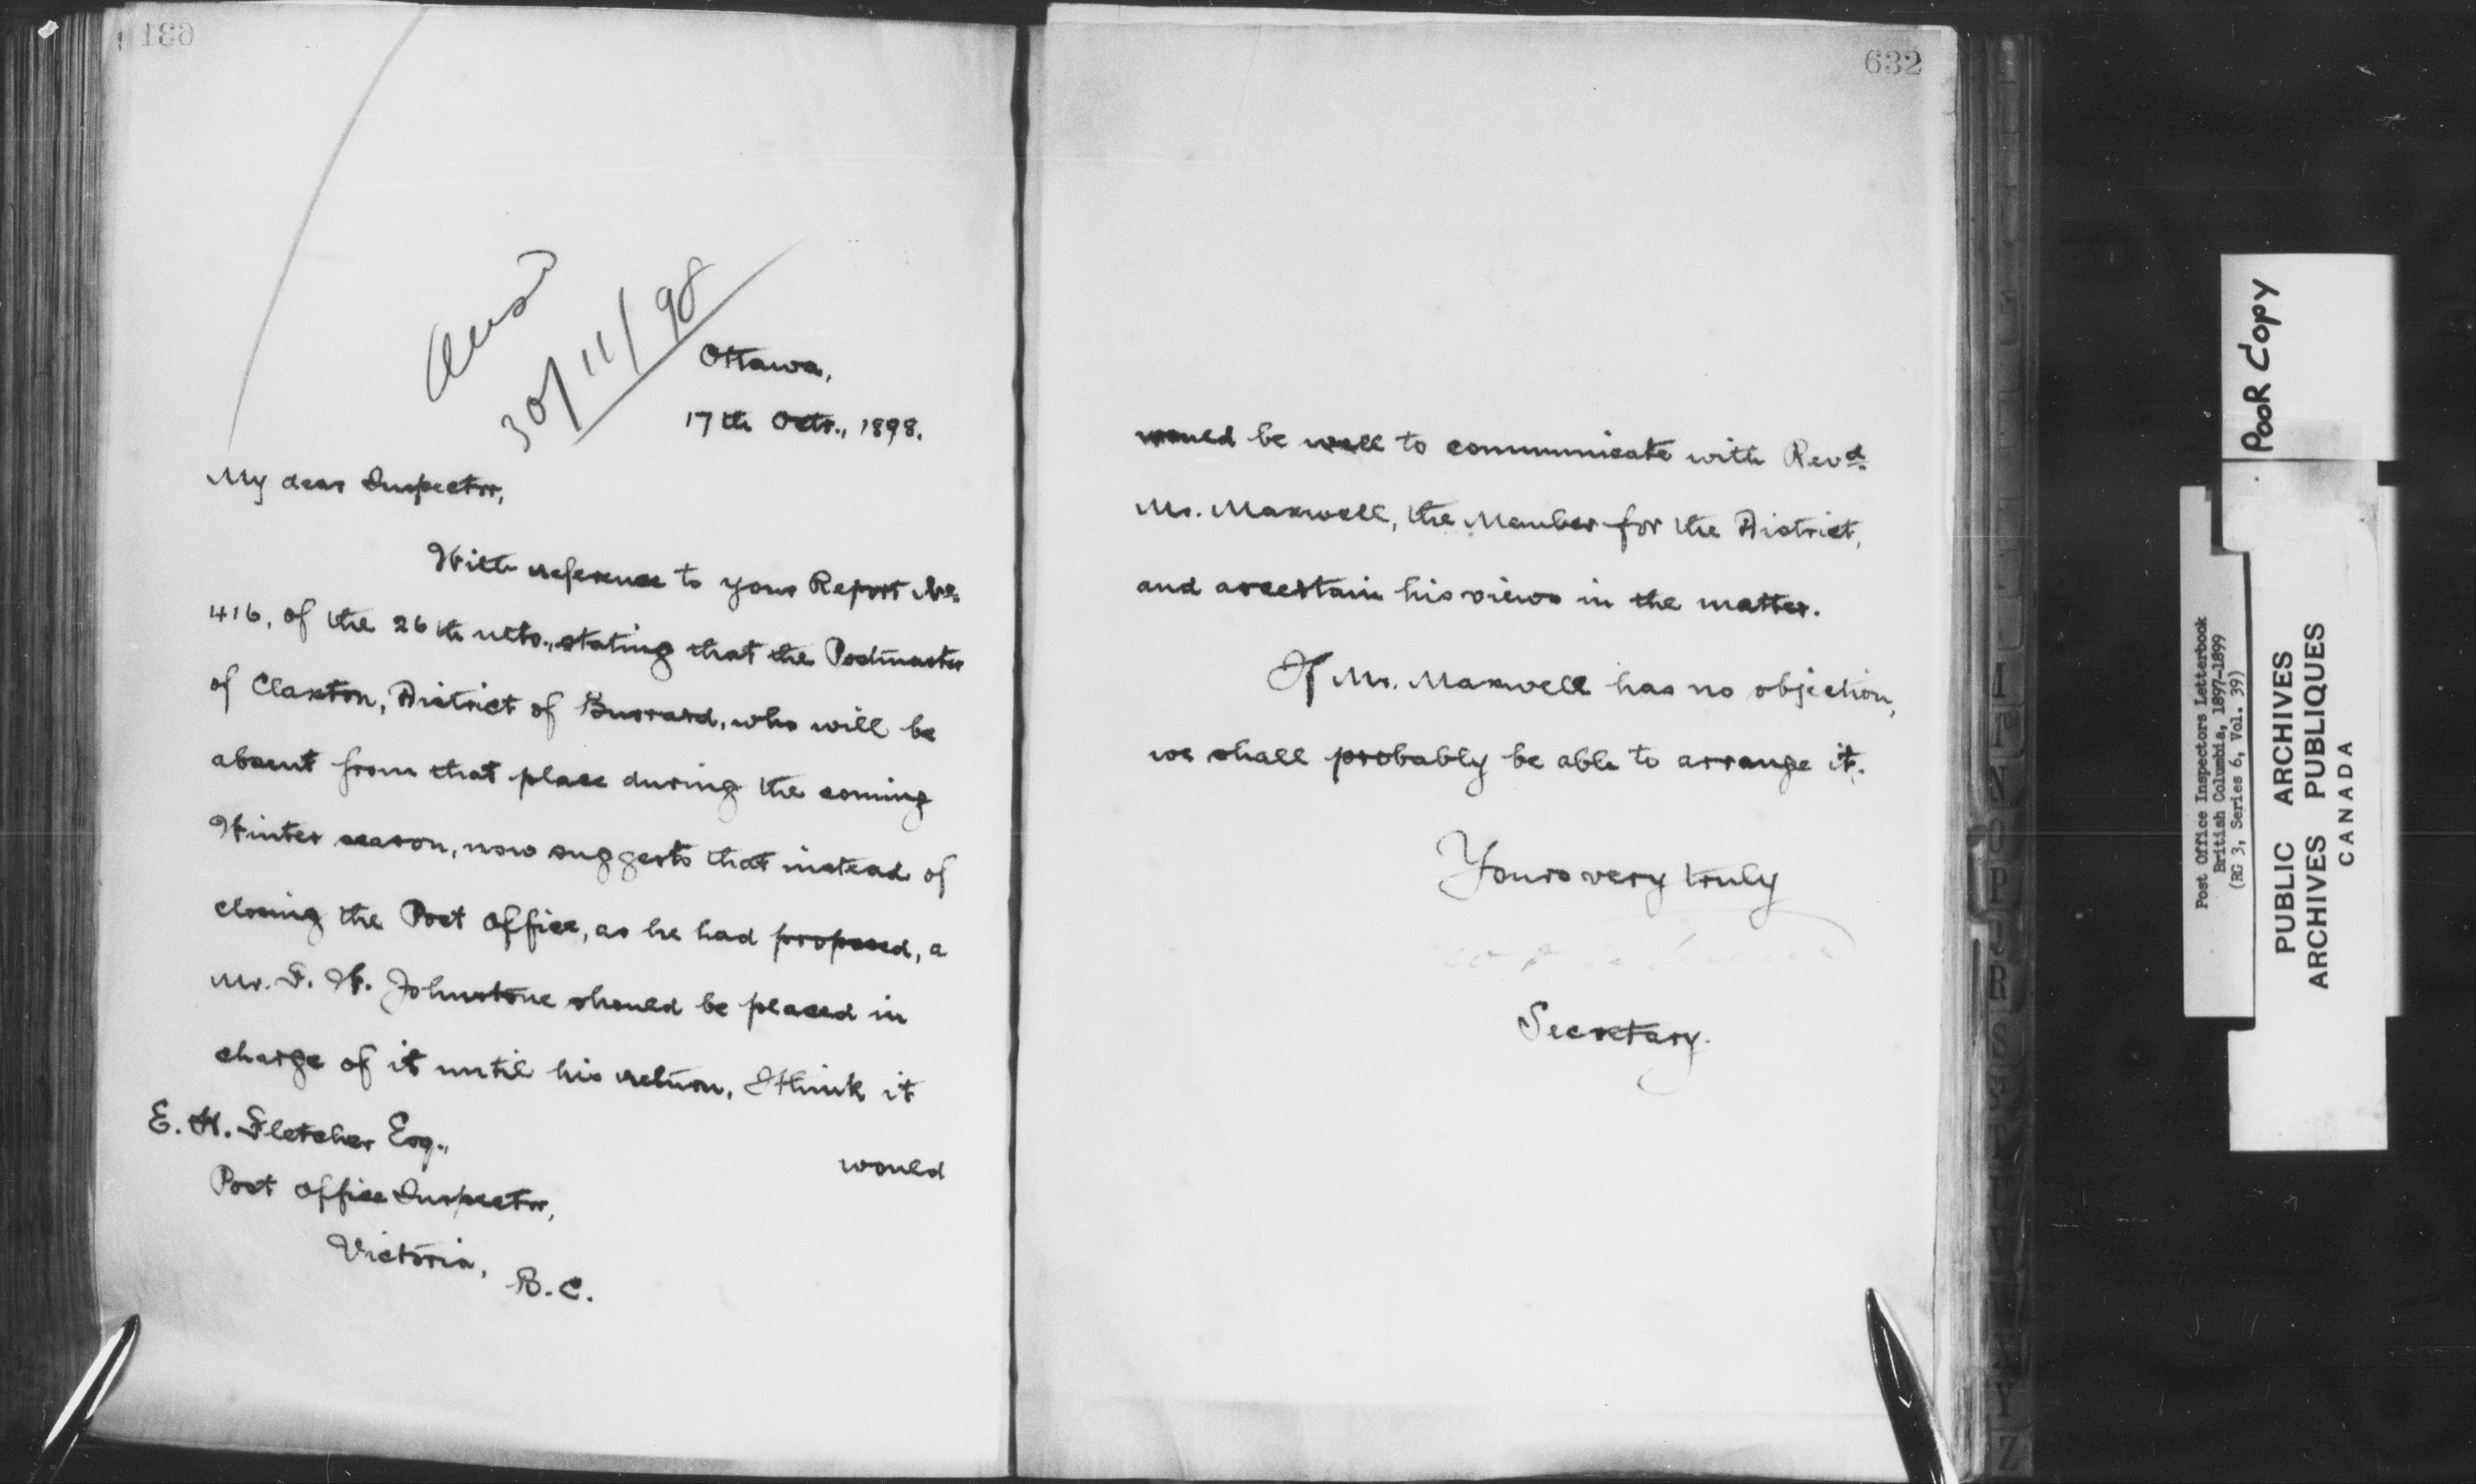 631
Ansd
30/11/98
Ottawa,
17th Octr., 1898.
My dear Inspector,
With reference to your Report No.
416, of the 26th ulto., stating that the Postmaster
of Claxton, District of Burrard, who will be
absent from that place during the coming
Winter season, now suggests that instead of
closing the Post Office, as he had proposed, a
Mr. F. W. Johnstone should be placed in
charge of it until his return, I think it
would
E. H. Fletcher Esq.,
Post Office Inspector,
Victoria,
B.C.
632
would be well to communicate with Revd.
Mr. Maxwell, the Member for the District,
and ascertain his views in the matter.
If Mr. Maxwell has no objection,
we shall probably be able to arrange it.
Yours very truly
Secretary.
POOR COPY
Post Office Inspectors Letterbook
British Columbia, 1897-1899
(RG 3, Series 6, Vol. 39)
PUBLIC ARCHIVES
ARCHIVES PUBLIQUES
CANADA